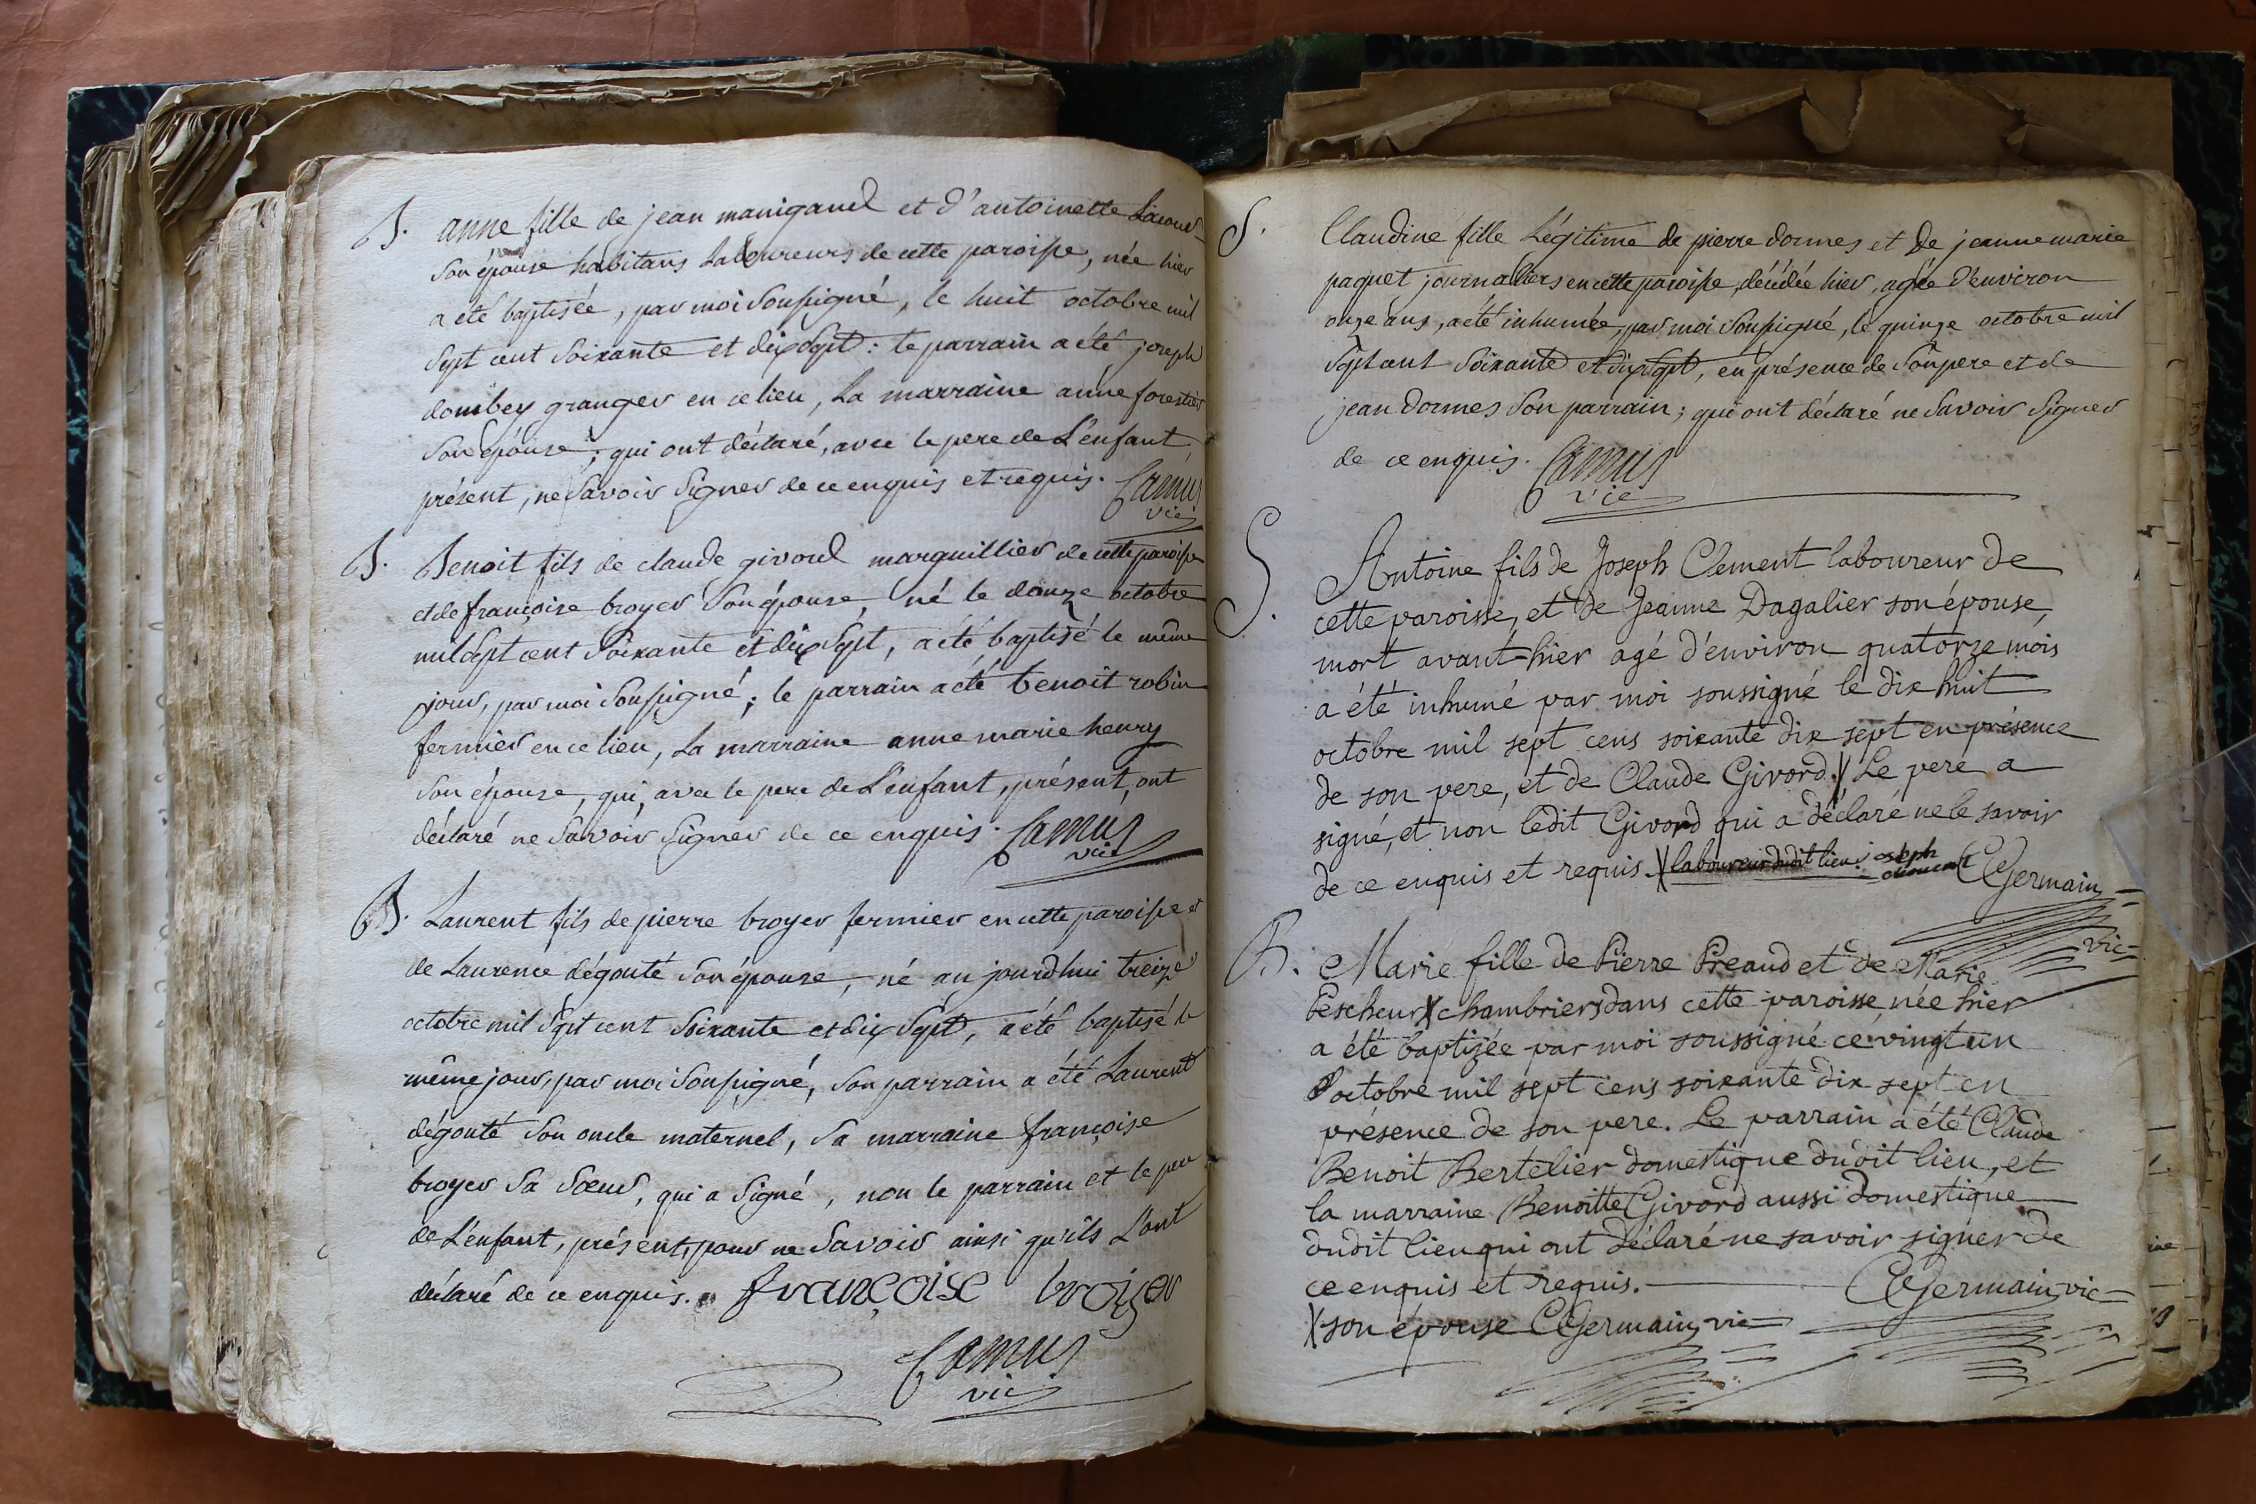 B. anne fille de jean manigand et d'antoinette Lacour
son épouse habitans laboureurs de cette paroisse, née hier
a été baptisée, par moi soussigné, le huit octobre mil
sept cent soixante et dix sept : le parrain a été joseph
dombey granger en ce lieu, La marraine anne forestier
son épouse ; qui ont déclaré, avec le pere de L'enfant,
présent, ne savoir signer de ce enquis et requis. Camus
vic
B. Benoit fils de claude givord marguillier de cette paroisse
et de françoise broyer son épouse, né le douze octobre
mil sept cent soixante et dix sept, a été baptisé le même
jour, par moi soussigné ; le parrain a été benoit robin
fermier en ce lieu, La marraine anne marie henry
son épouse, qui, avec le pere de L'enfant, présent, ont
déclaré ne savoir signer de ce enquis. Camus
vic
B. Laurent fils de pierre broyer fermier en cette paroisse et
de Laurence dégouté son épouse, né au jourdhui treize
octobre mil sept cent soixante et dix sept, a été baptisé le
même jour, par moi soussigné, son parrain a été Laurent
dégouté son oncle maternel, sa marraine françoise
broyer sa sœur, qui a signé, non le parrain et le pere
de L'enfant, présent, pour ne savoir ainsi qu'ils L'ont
déclaré de ce enquis. françoise broyer
Camus
vic
S. Claudine fille Légitime de pierre dormes et de jeanne marie
paquet journaliers en cette paroisse, décédée hier, agée d'environ
onze ans, a été inhumée, par moi soussigné, le quinze octobre mil
sept cent soixante et dix sept, en présence de son pere et de
jean dormes son parrain ; qui ont déclaré ne savoir signer
de ce enquis. Camus
vic
S. Antoine fils de Joseph Clement laboureur de
cette paroisse, et de Jeanne Dagalier son épouse,
mort avant-hier agé d'environ quatorze mois
a été inhumé par moi soussigné le dix huit
octobre mil sept cens soixante dix sept en présence
de son pere, et de Claude Givord. X Le pere a
signé, et non ledit Givord qui a déclaré ne le savoir
de ce enquis et requis. X laboureur dudit lieu. joseph clement CGermain
vic
B. Marie fille de Pierre Preaud et de Marie
Pescheur X chambriers dans cette paroisse, née hier
a été baptizée par moi soussigné ce vingt un
octobre mil sept cens soixante dix sept en
présence de son pere. Le parrain a été Claude
Benoit Bertelier domestique dudit lieu, et
la marraine Benoitte Givord aussi domestique
dudit lieu qui ont déclaré ne savoir signer de
ce enquis et requis. CGermain vic
X son épouse CGermain vic